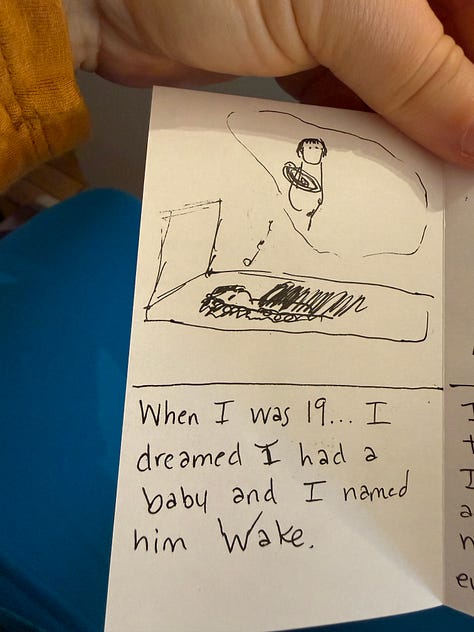 When I was 19... I
dreamed I had a
baby and I named
him Wake.
I
I